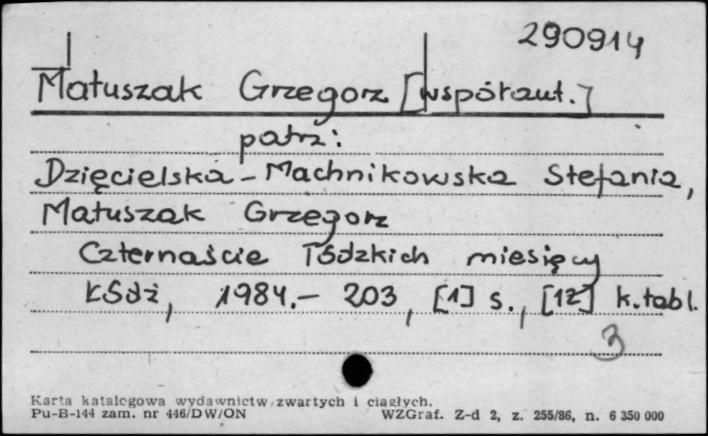 290914
Matuszak Grzegorz [współaut.]
patrz:
Dzięcielska-Machnikowska Stefania,
Matuszak Grzegorz
Czternaście łódzkich miesięcy
Łódź, 1984.- 203, [1] s., [12] k. tabl.
3
Karta katalogowa wydawnictw zwartych i ciągłych.
Pu-B-144 zam. nr 446/DW/ON WZGraf. Z-d 2, z. 255/86, n. 6 350 000